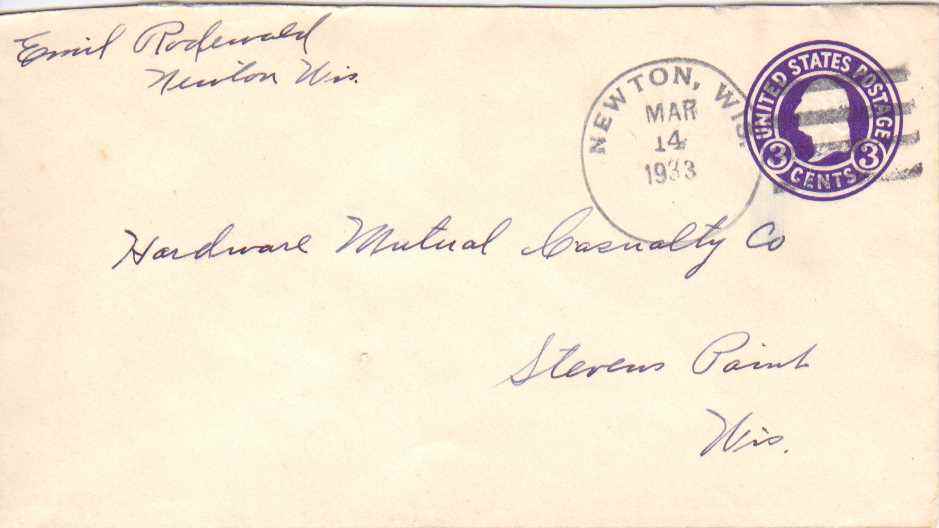 Emil Rodewald
Newton Wis.
NEWTON, WIS.
MAR
14
1933
UNITED STATES POSTAGE
3 CENTS 3
Hardware Mutual Casualty Co
Stevens Point
Wis.